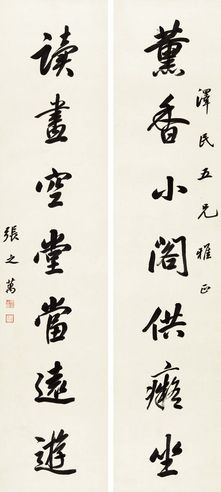 薰香小閣供癡坐
澤民五兄雅正
讀畫空堂當遠遊
張之萬